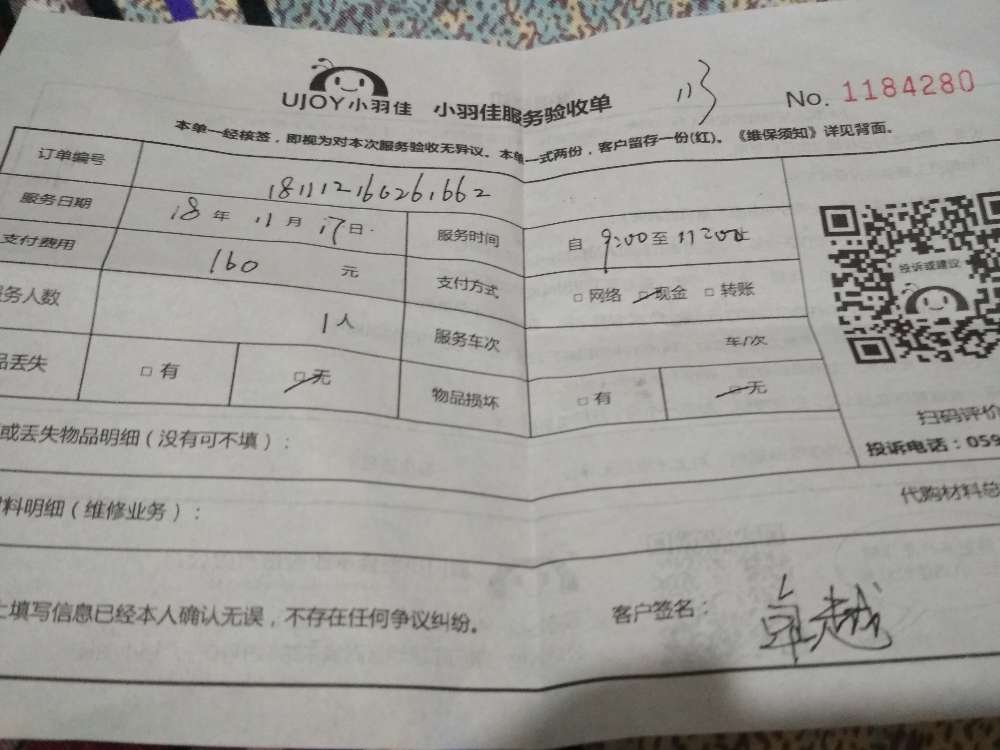 UJOY小羽佳 小羽佳服务验收单 No. 1184280
本单一经核签，即视为对本次服务验收无异议。本单一式两份，客户留存一份(红)。《维保须知》详见背面。
订单编号 181112160261662
服务日期 18年 11月 17日 服务时间 自 9:00至 11200止
支付费用 160 元 支付方式 □网络 □现金 □转账
务人数 1人 服务车次 车/次
品丢失 □有 □无 物品损坏 □有 □无
投诉或建议
扫码评价
投诉电话：059
或丢失物品明细（没有可不填）：
料明细（维修业务）： 代购材料总
上填写信息已经本人确认无误，不存在任何争议纠纷。 客户签名：卓越